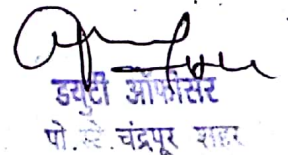 ड्युटी ऑफीसर
पो. स्टे. चंद्रपूर शहर